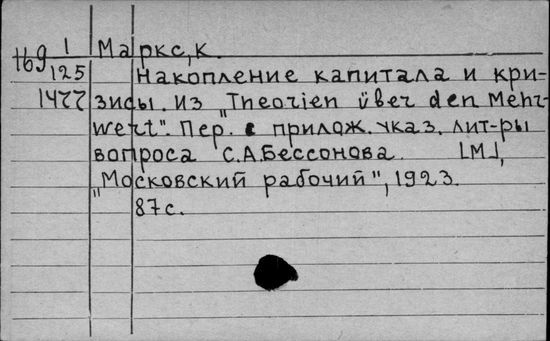 Н69 1/125 Маркс, К.
Накопление капитала и кри-
1477 зисы. Из "Theorien über den Mehr-
wert". Пер. с прилож. указ. лит-ры
вопроса С.А.Бессонова. [М],
"Московский рабочий", 1923.
87с.